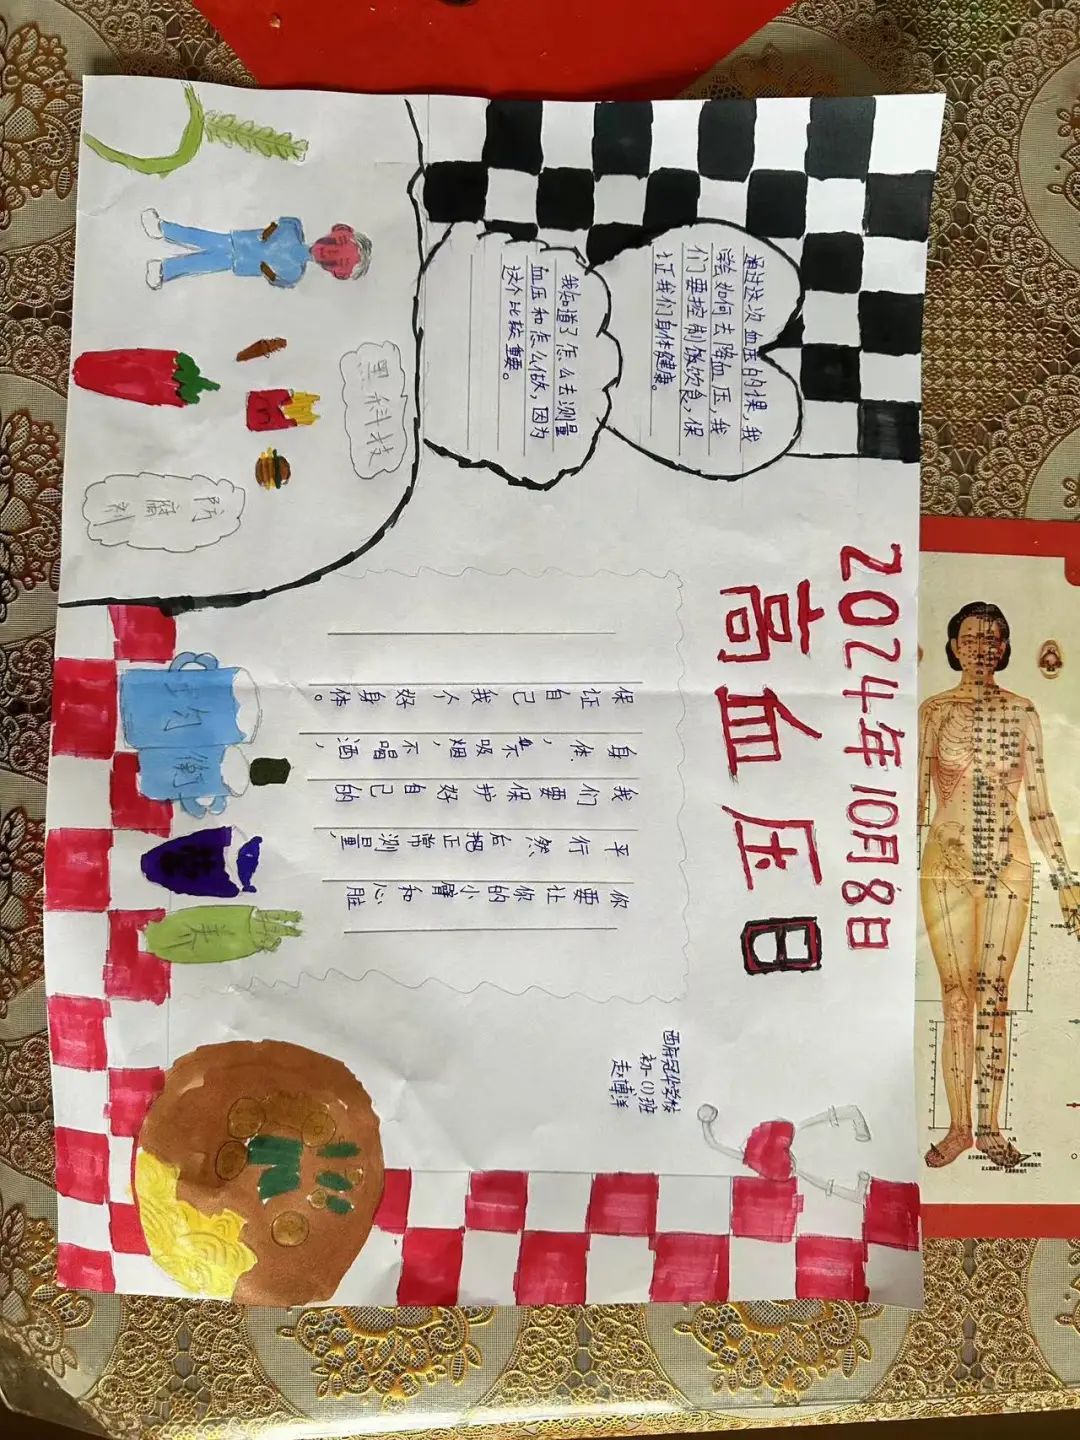 2024年10月8日
高血压日
通过这次血压的课,我
学会如何去降血压,我
们要控制饭饮食,保
证我们身体健康
我知道了怎么去测量
血压和怎么做,因为
这个比较重要。
西府冠华学校
初一(1)班
赵博洋
你要让你的小臂和心脏
平行然、后把正常测量,
我们要保护好自己的
身体,不吸烟,不喝酒,
保证自己我个好身体。
黑科技
防腐剂
均衡